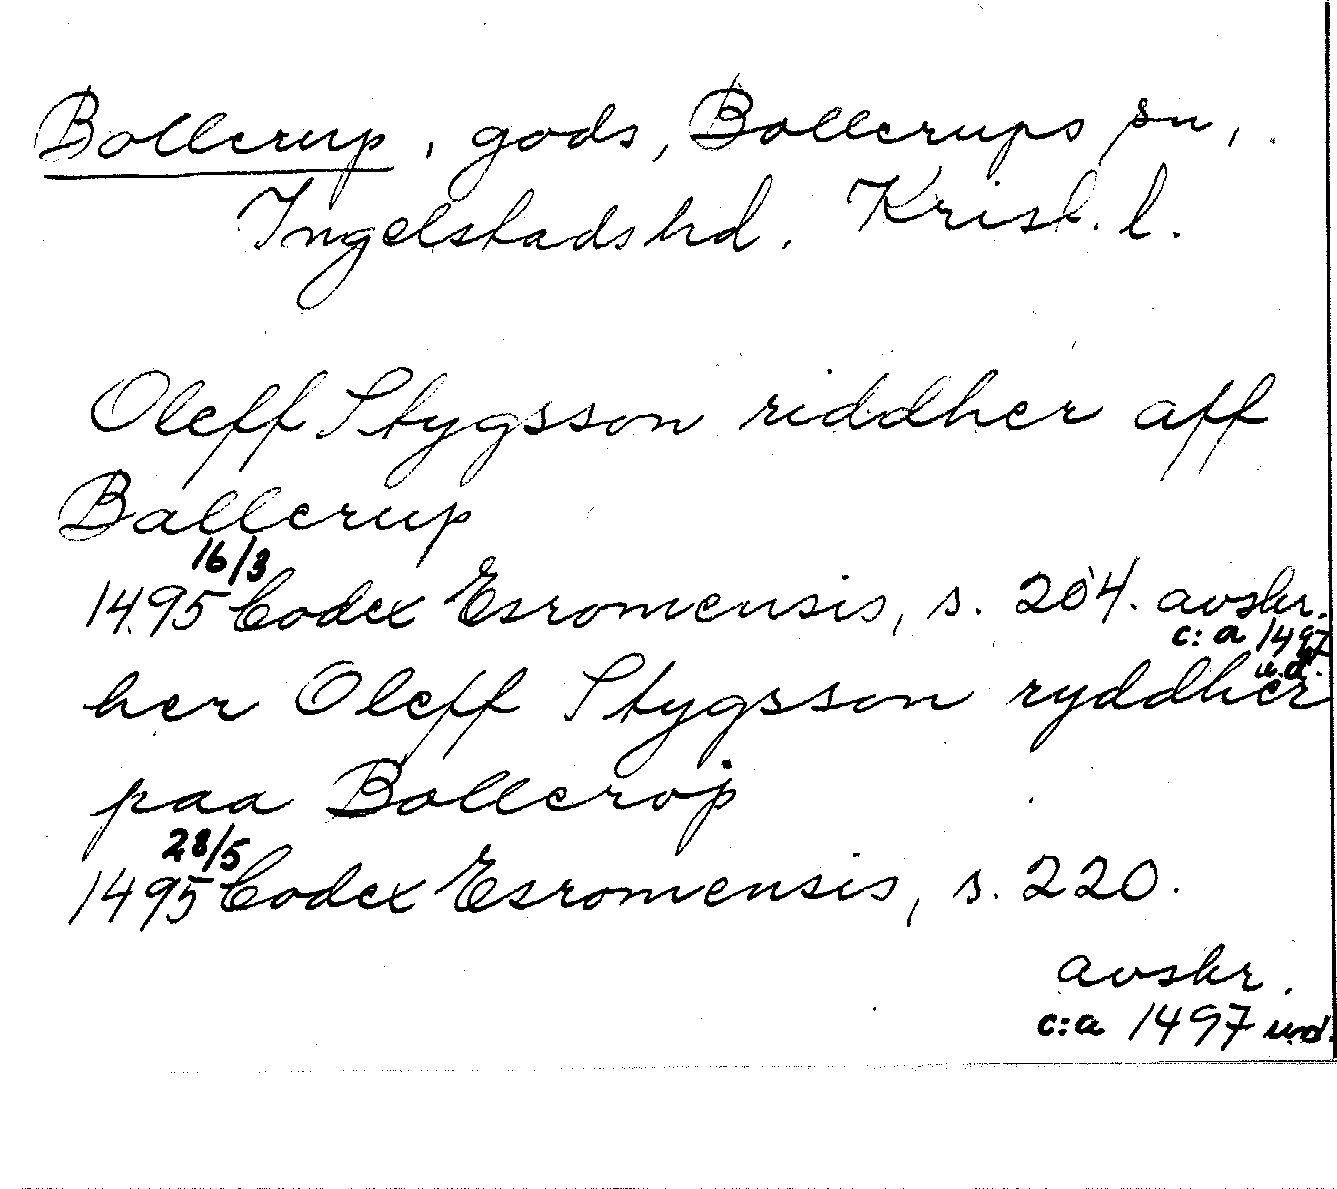 Bollerup, gods, Bollerups sn,
Ingelstads hd. Krist. l.
Oleff Stygsson riddher aff
Ballerup
16/3
1495 Codex Esromensis, s. 204. avskr.
c:a 1497
u.d.
her Oleff Stygsson ryddher
paa Bollerop
28/5
1495 Codex Esromensis, s. 220.
avskr.
c:a 1497 und.